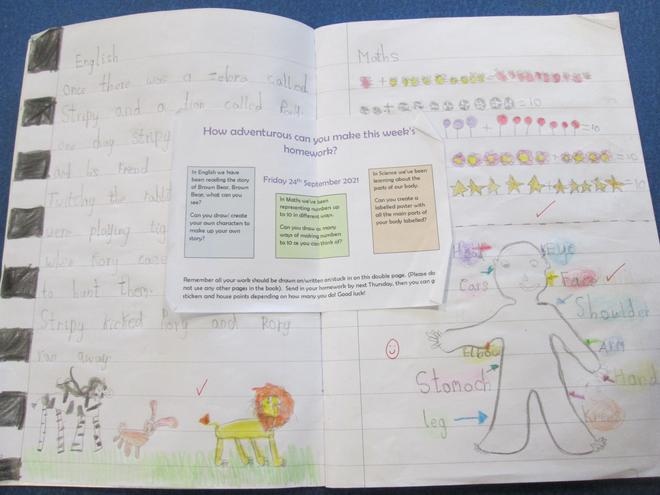 English
Once there was a zebra called
Stripy and a lion called Rory.
one day Stripy
and his friend
Twitchy the rabbit
were playing
when Rory came
to hunt them.
Stripy kicked Rory and Rory
ran away
How adventurous can you make this week's
homework?
In English we have
been reading the story
of Brown Bear, Brown
Bear, what can you
see?
Can you draw/ create
your own characters to
make up your own
story?
Friday 24th September 2021
In Maths we've been
representing numbers up
to 10 in different ways.
Can you draw as many
ways of making numbers
to 10 as you can think of?
In Science we've been
learning about the
parts of our body.
Can you create a
labelled poster with
all the main parts of
your body labelled?
Remember all your work should be drawn/written/stuck in on this double page. (Please do
not use any other pages in the book). Send in your homework by next Thursday, then you can g
stickers and house points depending on how many you do! Good luck!
Maths
+ =
=10
+ =10
+ =10
+ =10
Head
Eye
Ears
Face
Shoulder
Elbow
Arm
Stomach
Hand
leg
Knee